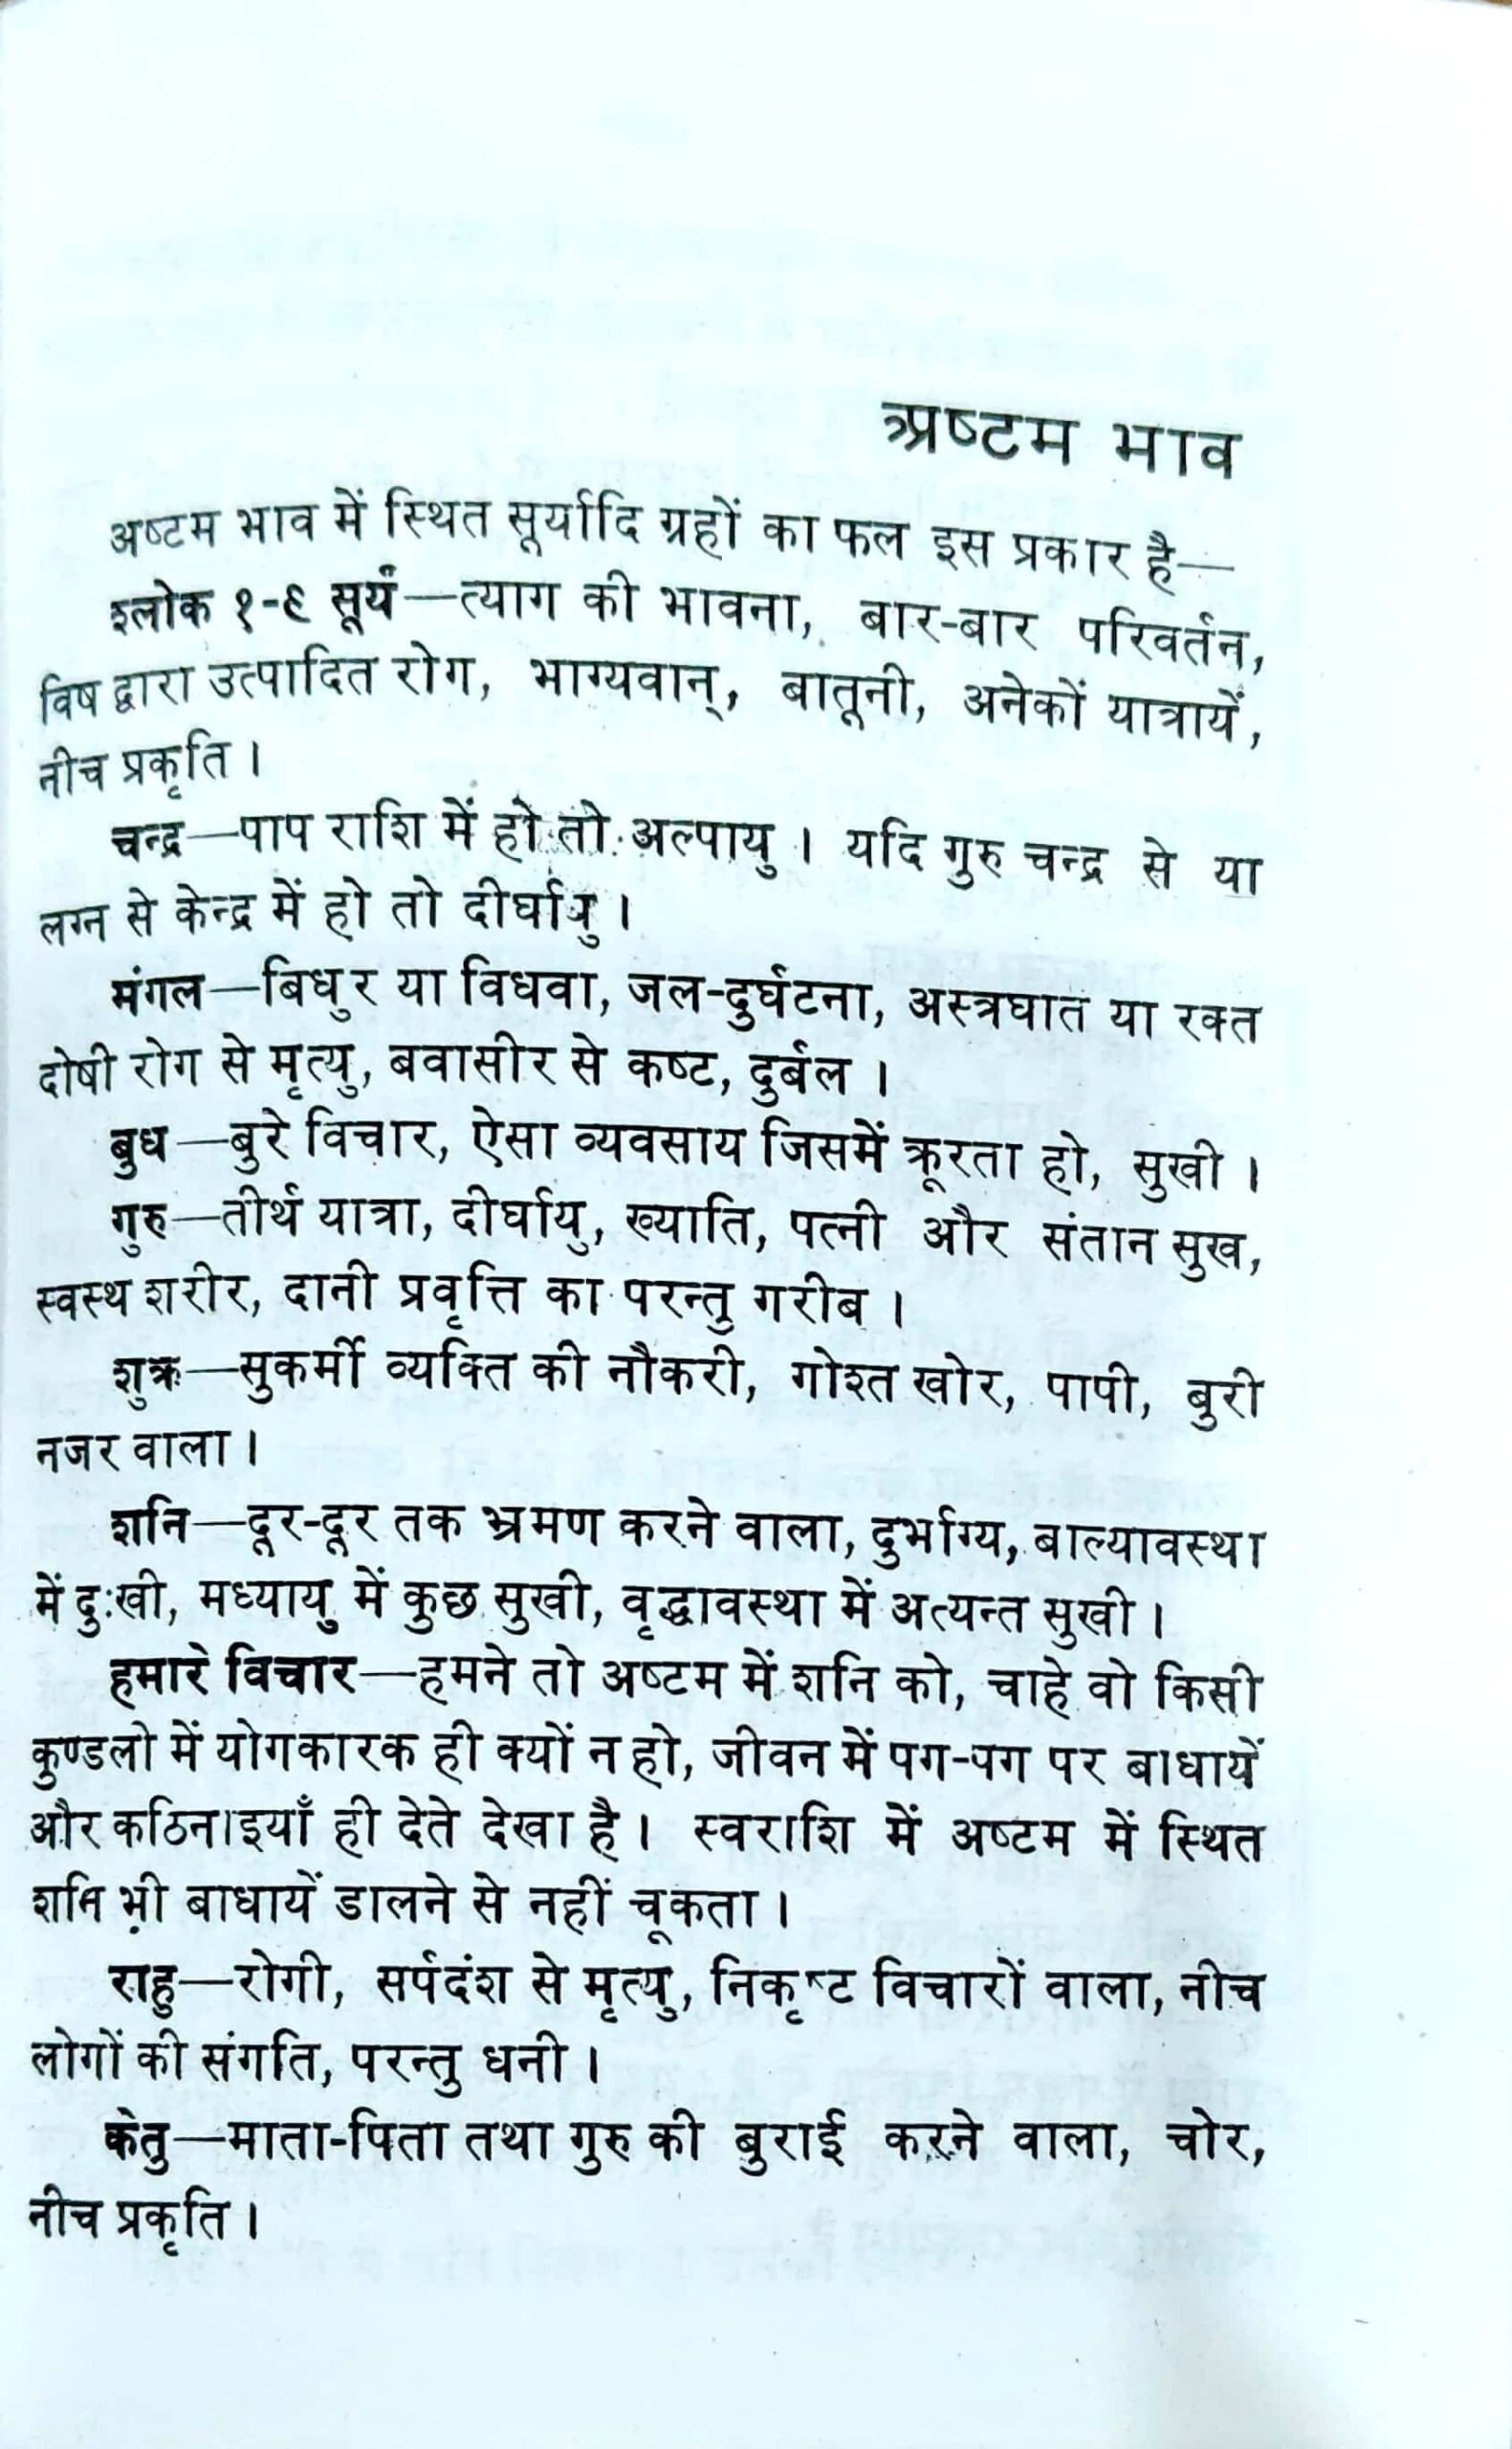 अष्टम भाव
अष्टम भाव में स्थित सूर्यादि ग्रहों का फल इस प्रकार है—
श्लोक १-९ सूर्य—त्याग की भावना, बार-बार परिवर्तन,
विष द्वारा उत्पादित रोग, भाग्यवान्, बातूनी, अनेकों यात्रायें,
नीच प्रकृति ।
चन्द्र—पाप राशि में हो तो अल्पायु । यदि गुरु चन्द्र से या
लग्न से केन्द्र में हो तो दीर्घायु ।
मंगल—बिधुर या विधवा, जल-दुर्घटना, अस्त्रघात या रक्त
दोषी रोग से मृत्यु, बवासीर से कष्ट, दुर्बल ।
बुध—बुरे विचार, ऐसा व्यवसाय जिसमें क्रूरता हो, सुखी ।
गुरु—तीर्थ यात्रा, दीर्घायु, ख्याति, पत्नी और संतान सुख,
स्वस्थ शरीर, दानी प्रवृत्ति का परन्तु गरीब ।
शुक्र—सुकर्मी व्यक्ति की नौकरी, गोश्त खोर, पापी, बुरी
नजर वाला ।
शनि—दूर-दूर तक भ्रमण करने वाला, दुर्भाग्य, बाल्यावस्था
में दुःखी, मध्यायु में कुछ सुखी, वृद्धावस्था में अत्यन्त सुखी ।
हमारे विचार—हमने तो अष्टम में शनि को, चाहे वो किसी
कुण्डलो में योगकारक ही क्यों न हो, जीवन में पग-पग पर बाधायें
और कठिनाइयाँ ही देते देखा है । स्वराशि में अष्टम में स्थित
शनि भी बाधायें डालने से नहीं चूकता ।
राहु—रोगी, सर्पदंश से मृत्यु, निकृष्ट विचारों वाला, नीच
लोगों की संगति, परन्तु धनी ।
केतु—माता-पिता तथा गुरु की बुराई करने वाला, चोर,
नीच प्रकृति ।